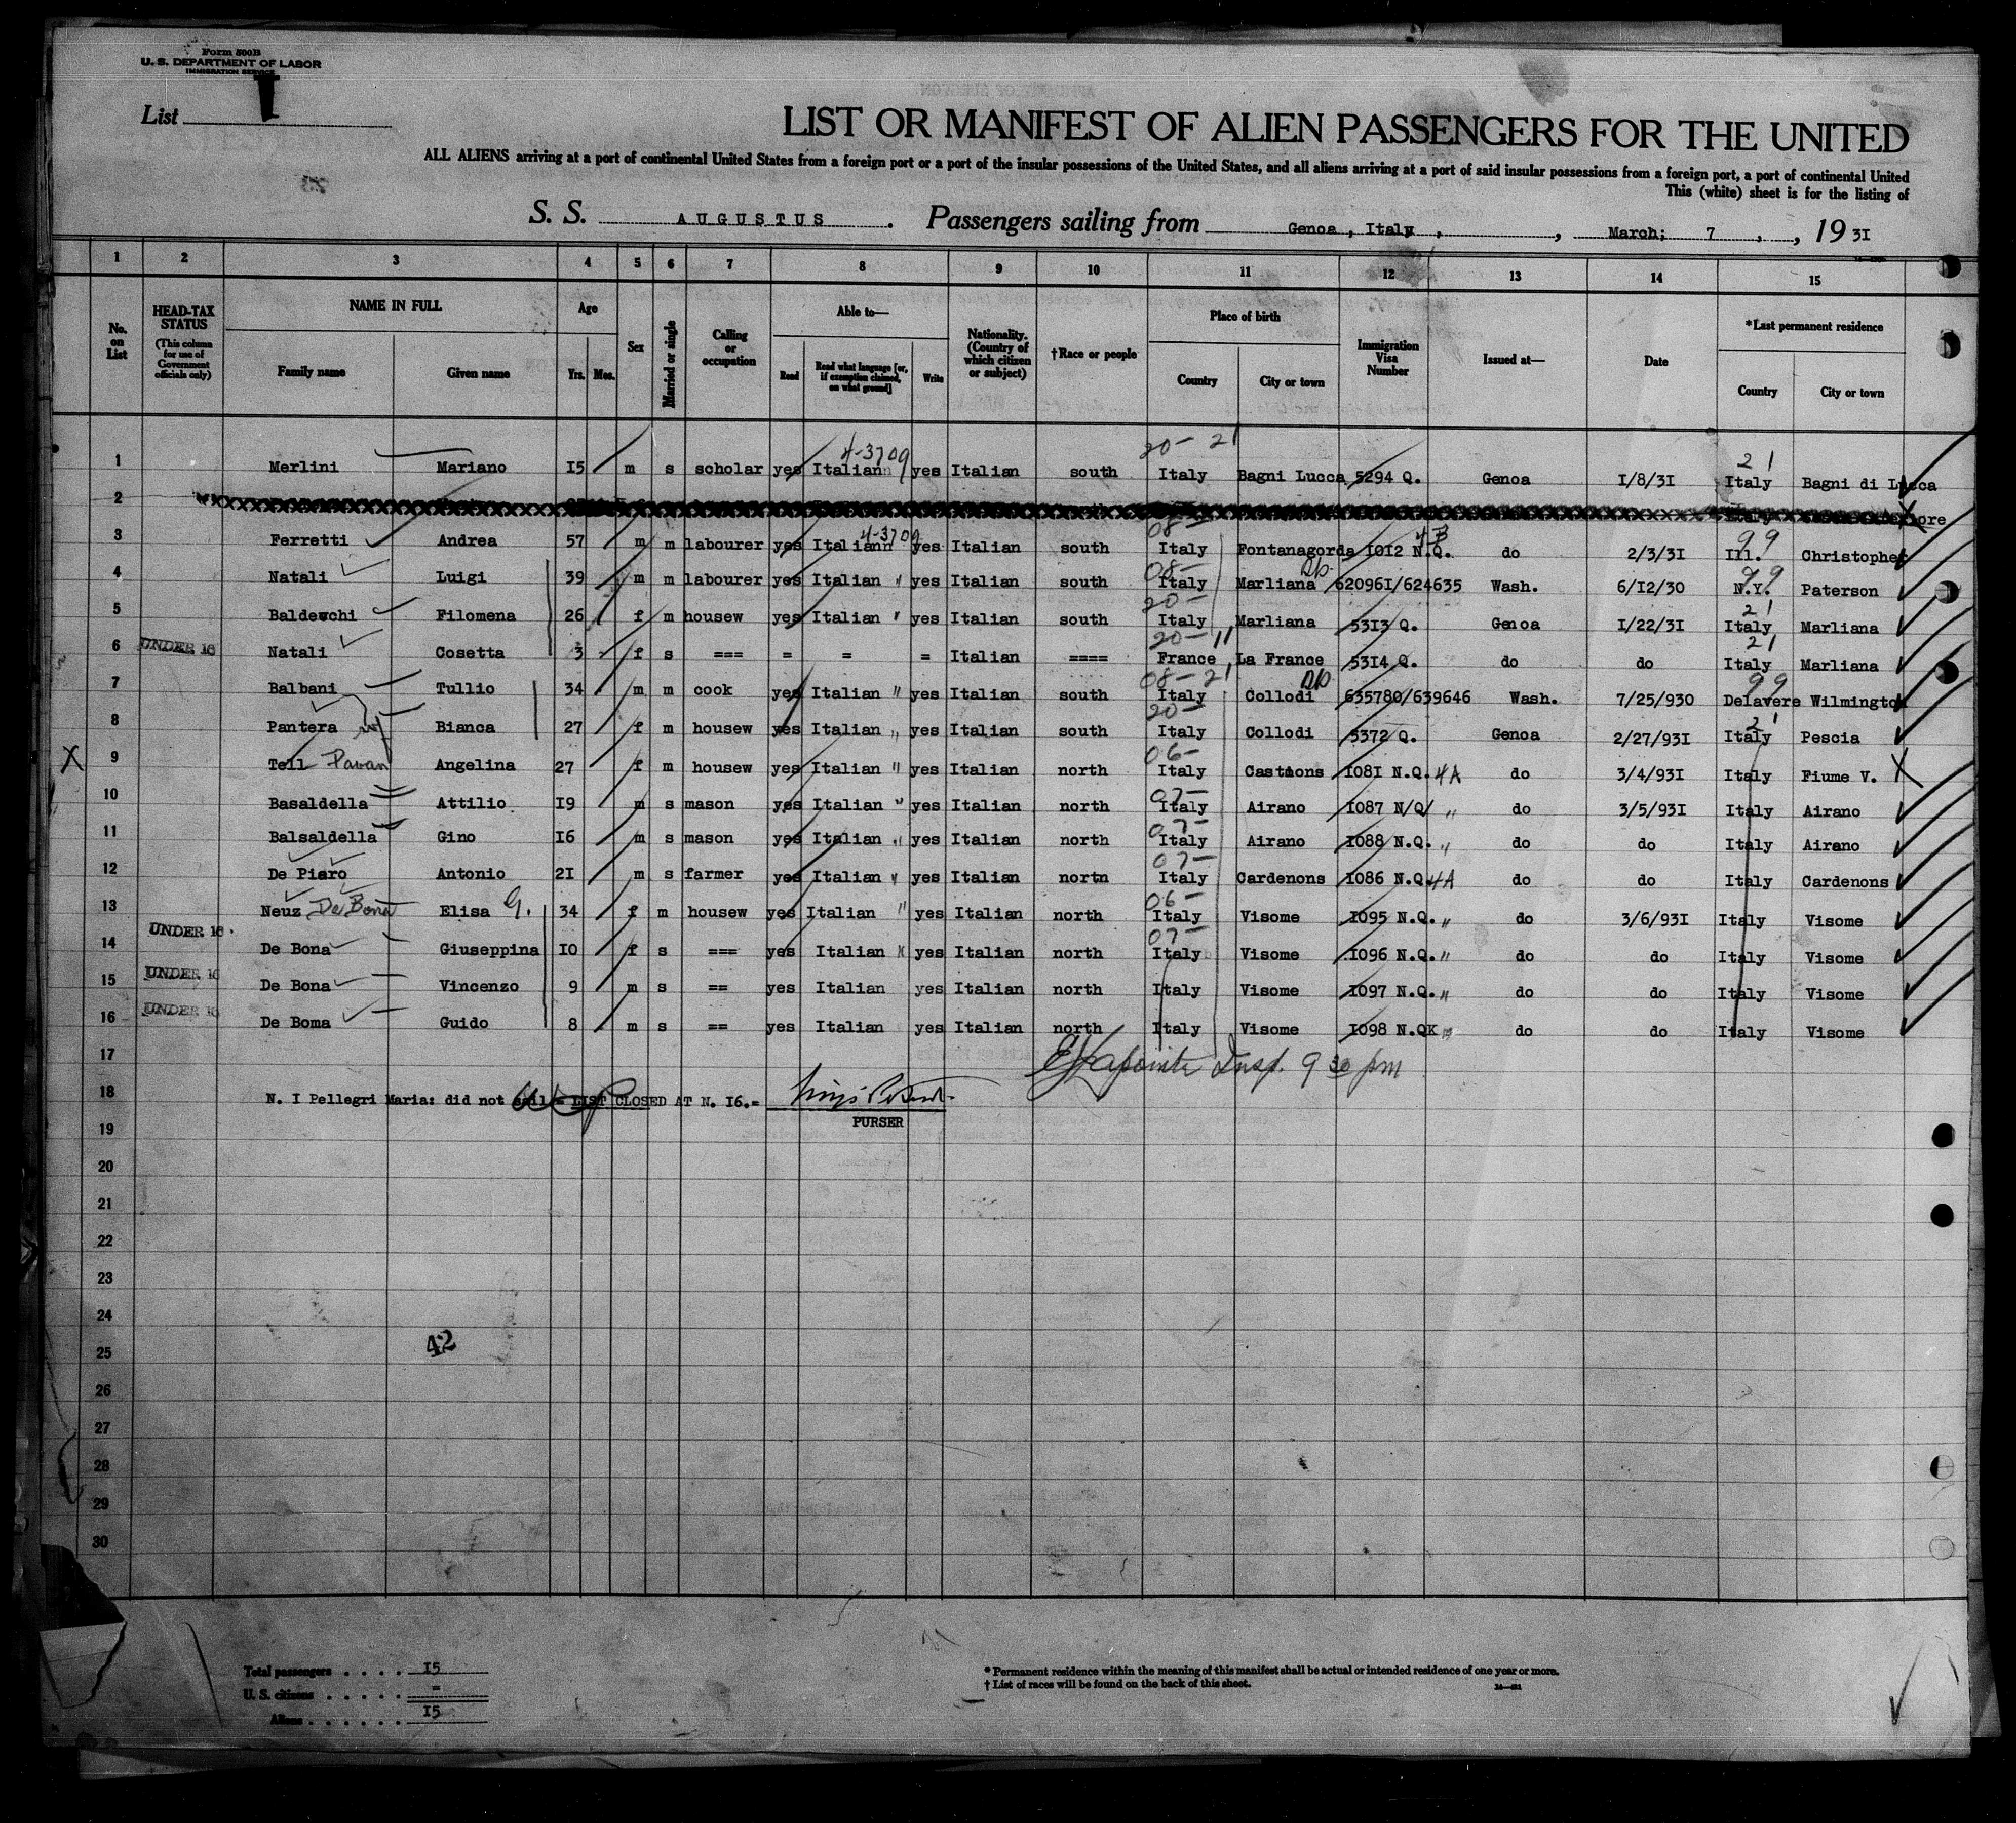 Form 500B
U. S. DEPARTMENT OF LABOR
IMMIGRATION SERVICE
List I
LIST OR MANIFEST OF ALIEN PASSENGERS FOR THE UNITED
ALL ALIENS arriving at a port of continental United States from a foreign port or a port of the insular possessions of the United States, and all aliens arriving at a port of said insular possessions from a foreign port, a port of continental United
This (white) sheet is for the listing of
S. S. AUGUSTUS. Passengers sailing from Genoa, Italy, , March; 7, , 19 31
1 2 3 4 5 6 7 8 9 10 11 12 13 14 15
No. on List
HEAD-TAX STATUS (This column for use of Government officials only)
NAME IN FULL
Family name
Given name
Age
Yrs. Mos.
Sex
Married or single
Calling or occupation
Able to—
Read
Read what language [or, if exemption claimed, on what ground]
Write
Nationality. (Country of which citizen or subject)
†Race or people
Place of birth
Country
City or town
Immigration Visa Number
Issued at—
Date
*Last permanent residence
Country
City or town
4-3709 20- 21 21
1 Merlini Mariano 15 m s scholar yes Italiann yes Italian south Italy Bagni Lucca 5294 Q. Genoa 1/8/31 Italy Bagni di Lucca
2
4-3709 08- 4B 99
3 Ferretti Andrea 57 m m labourer yes Italiann yes Italian south Italy Fontanagorda 1012 N.Q. do 2/3/31 Ill. Christopher
08- 99
4 Natali Luigi 39 m m labourer yes Italian " yes Italian south Italy Marliana 620961/624635 Wash. 6/12/30 N.Y. Paterson
20- 21
5 Baldewchi Filomena 26 f m housew yes Italian " yes Italian south Italy Marliana 5313 Q. Genoa 1/22/31 Italy Marliana
20-11 21
6 UNDER 16 Natali Cosetta 3 f s === = = = Italian ==== France La France 5314 Q. do do Italy Marliana
08-21 99
7 Balbani Tullio 34 m m cook yes Italian " yes Italian south Italy Collodi 635780/639646 Wash. 7/25/930 Delavere Wilmington
20- 21
8 Pantera Bianca 27 f m housew yes Italian " yes Italian south Italy Collodi 5372 Q. Genoa 2/27/931 Italy Pescia
06-
X 9 Tell Pavan Angelina 27 f m housew yes Italian " yes Italian north Italy Castions 1081 N.Q. 4A do 3/4/931 Italy Fiume V. X
07-
10 Basaldella Attilio 19 m s mason yes Italian " yes Italian north Italy Airano 1087 N/Q/ " do 3/5/931 Italy Airano
07-
11 Balsaldella Gino 16 m s mason yes Italian " yes Italian north Italy Airano 1088 N.Q. " do do Italy Airano
07-
12 De Piaro Antonio 21 m s farmer yes Italian " yes Italian nortn Italy Cardenons 1086 N.Q. 4A do do Italy Cardenons
06-
13 Neuz De Bona Elisa G. 34 f m housew yes Italian " yes Italian north Italy Visome 1095 N.Q. " do 3/6/931 Italy Visome
07-
14 UNDER 16 De Bona Giuseppina 10 f s === yes Italian yes Italian north Italy Visome 1096 N.Q. " do do Italy Visome
15 UNDER 16 De Bona Vincenzo 9 m s == yes Italian yes Italian north Italy Visome 1097 N.Q. " do do Italy Visome
16 UNDER 16 De Boma Guido 8 m s == yes Italian yes Italian north Italy Visome 1098 N.QK do do Italy Visome
17 Insp. 9 30 pm
18 N. I Pellegri Maria: did not sail = LIST CLOSED AT N. 16.=
PURSER
19
20
21
22
23
24
25
42
26
27
28
29
30
Total passengers . . . . 15
U. S. citizens . . . . . =
Aliens . . . . . . 15
* Permanent residence within the meaning of this manifest shall be actual or intended residence of one year or more.
† List of races will be found on the back of this sheet.